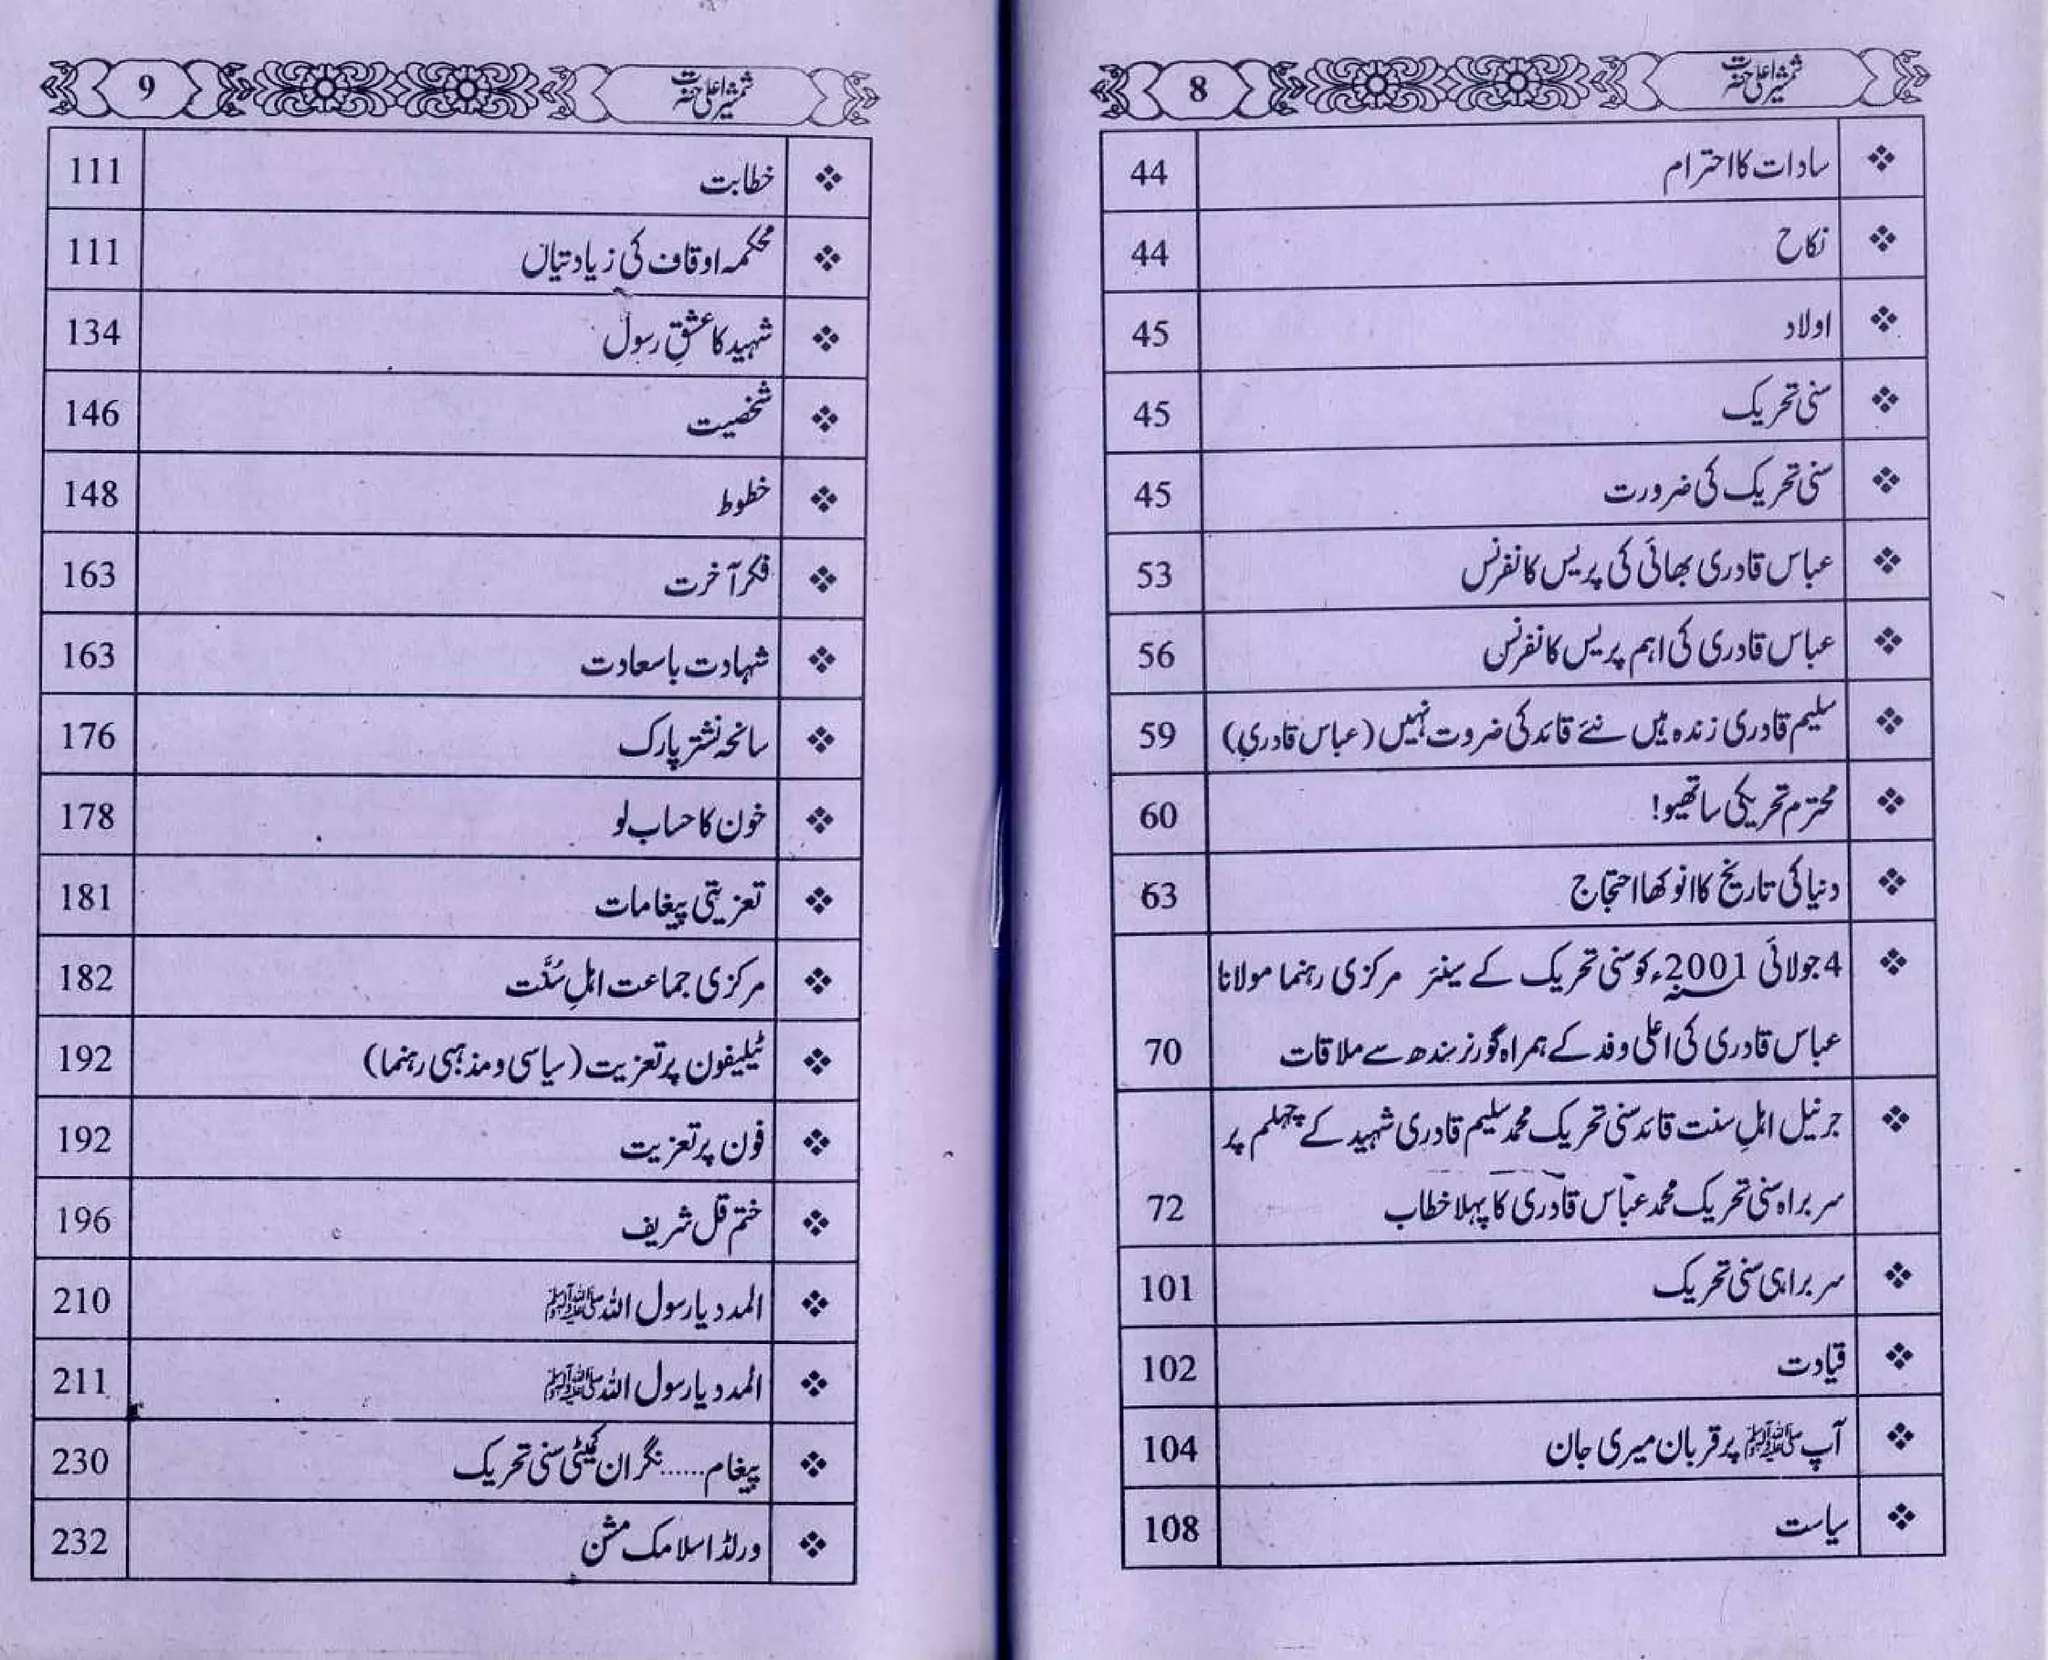 شمشیر اعلیٰ حضرت 8
❖ سادات کا احترام 44
❖ نکاح 44
❖ اولاد 45
❖ سنی تحریک 45
❖ سنی تحریک کی ضرورت 45
❖ عباس قادری بھائی کی پریس کانفرنس 53
❖ عباس قادری کی اہم پریس کانفرنس 56
❖ سلیم قادری زندہ ہیں نئے قائد کی ضروت نہیں (عباس قادری) 59
❖ محترم تحریکی ساتھیو! 60
❖ دنیا کی تاریخ کا انوکھا احتجاج 63
❖ 4 جولائی 2001ء کو سنی تحریک کے سینئر مرکزی رہنما مولانا
عباس قادری کی اعلیٰ وفد کے ہمراہ گورنر سندھ سے ملاقات 70
❖ جرنیل اہلِ سنت قائد سنی تحریک محمد سلیم قادری شہید کے چہلم پر
سربراہ سنی تحریک محمد عباس قادری کا پہلا خطاب 72
❖ سربراہی سنی تحریک 101
❖ قیادت 102
❖ آپ ﷺ پر قربان میری جان 104
❖ سیاست 108
شمشیر اعلیٰ حضرت 9
❖ خطابت 111
❖ محکمہ اوقاف کی زیادتیاں 111
❖ شہید کا عشقِ رسول 134
❖ شخصیت 146
❖ خطوط 148
❖ فکر آخرت 163
❖ شہادت باسعادت 163
❖ سانحہ نشتر پارک 176
❖ خون کا حساب لو 178
❖ تعزیتی پیغامات 181
❖ مرکزی جماعت اہلِ سُنَّت 182
❖ ٹیلیفون پر تعزیت (سیاسی و مذہبی رہنما) 192
❖ فون پر تعزیت 192
❖ ختم قل شریف 196
❖ المدد یا رسول اللہ ﷺ 210
❖ المدد یا رسول اللہ ﷺ 211
❖ پیغام......نگران کمیٹی سنی تحریک 230
❖ ورلڈ اسلامک مشن 232